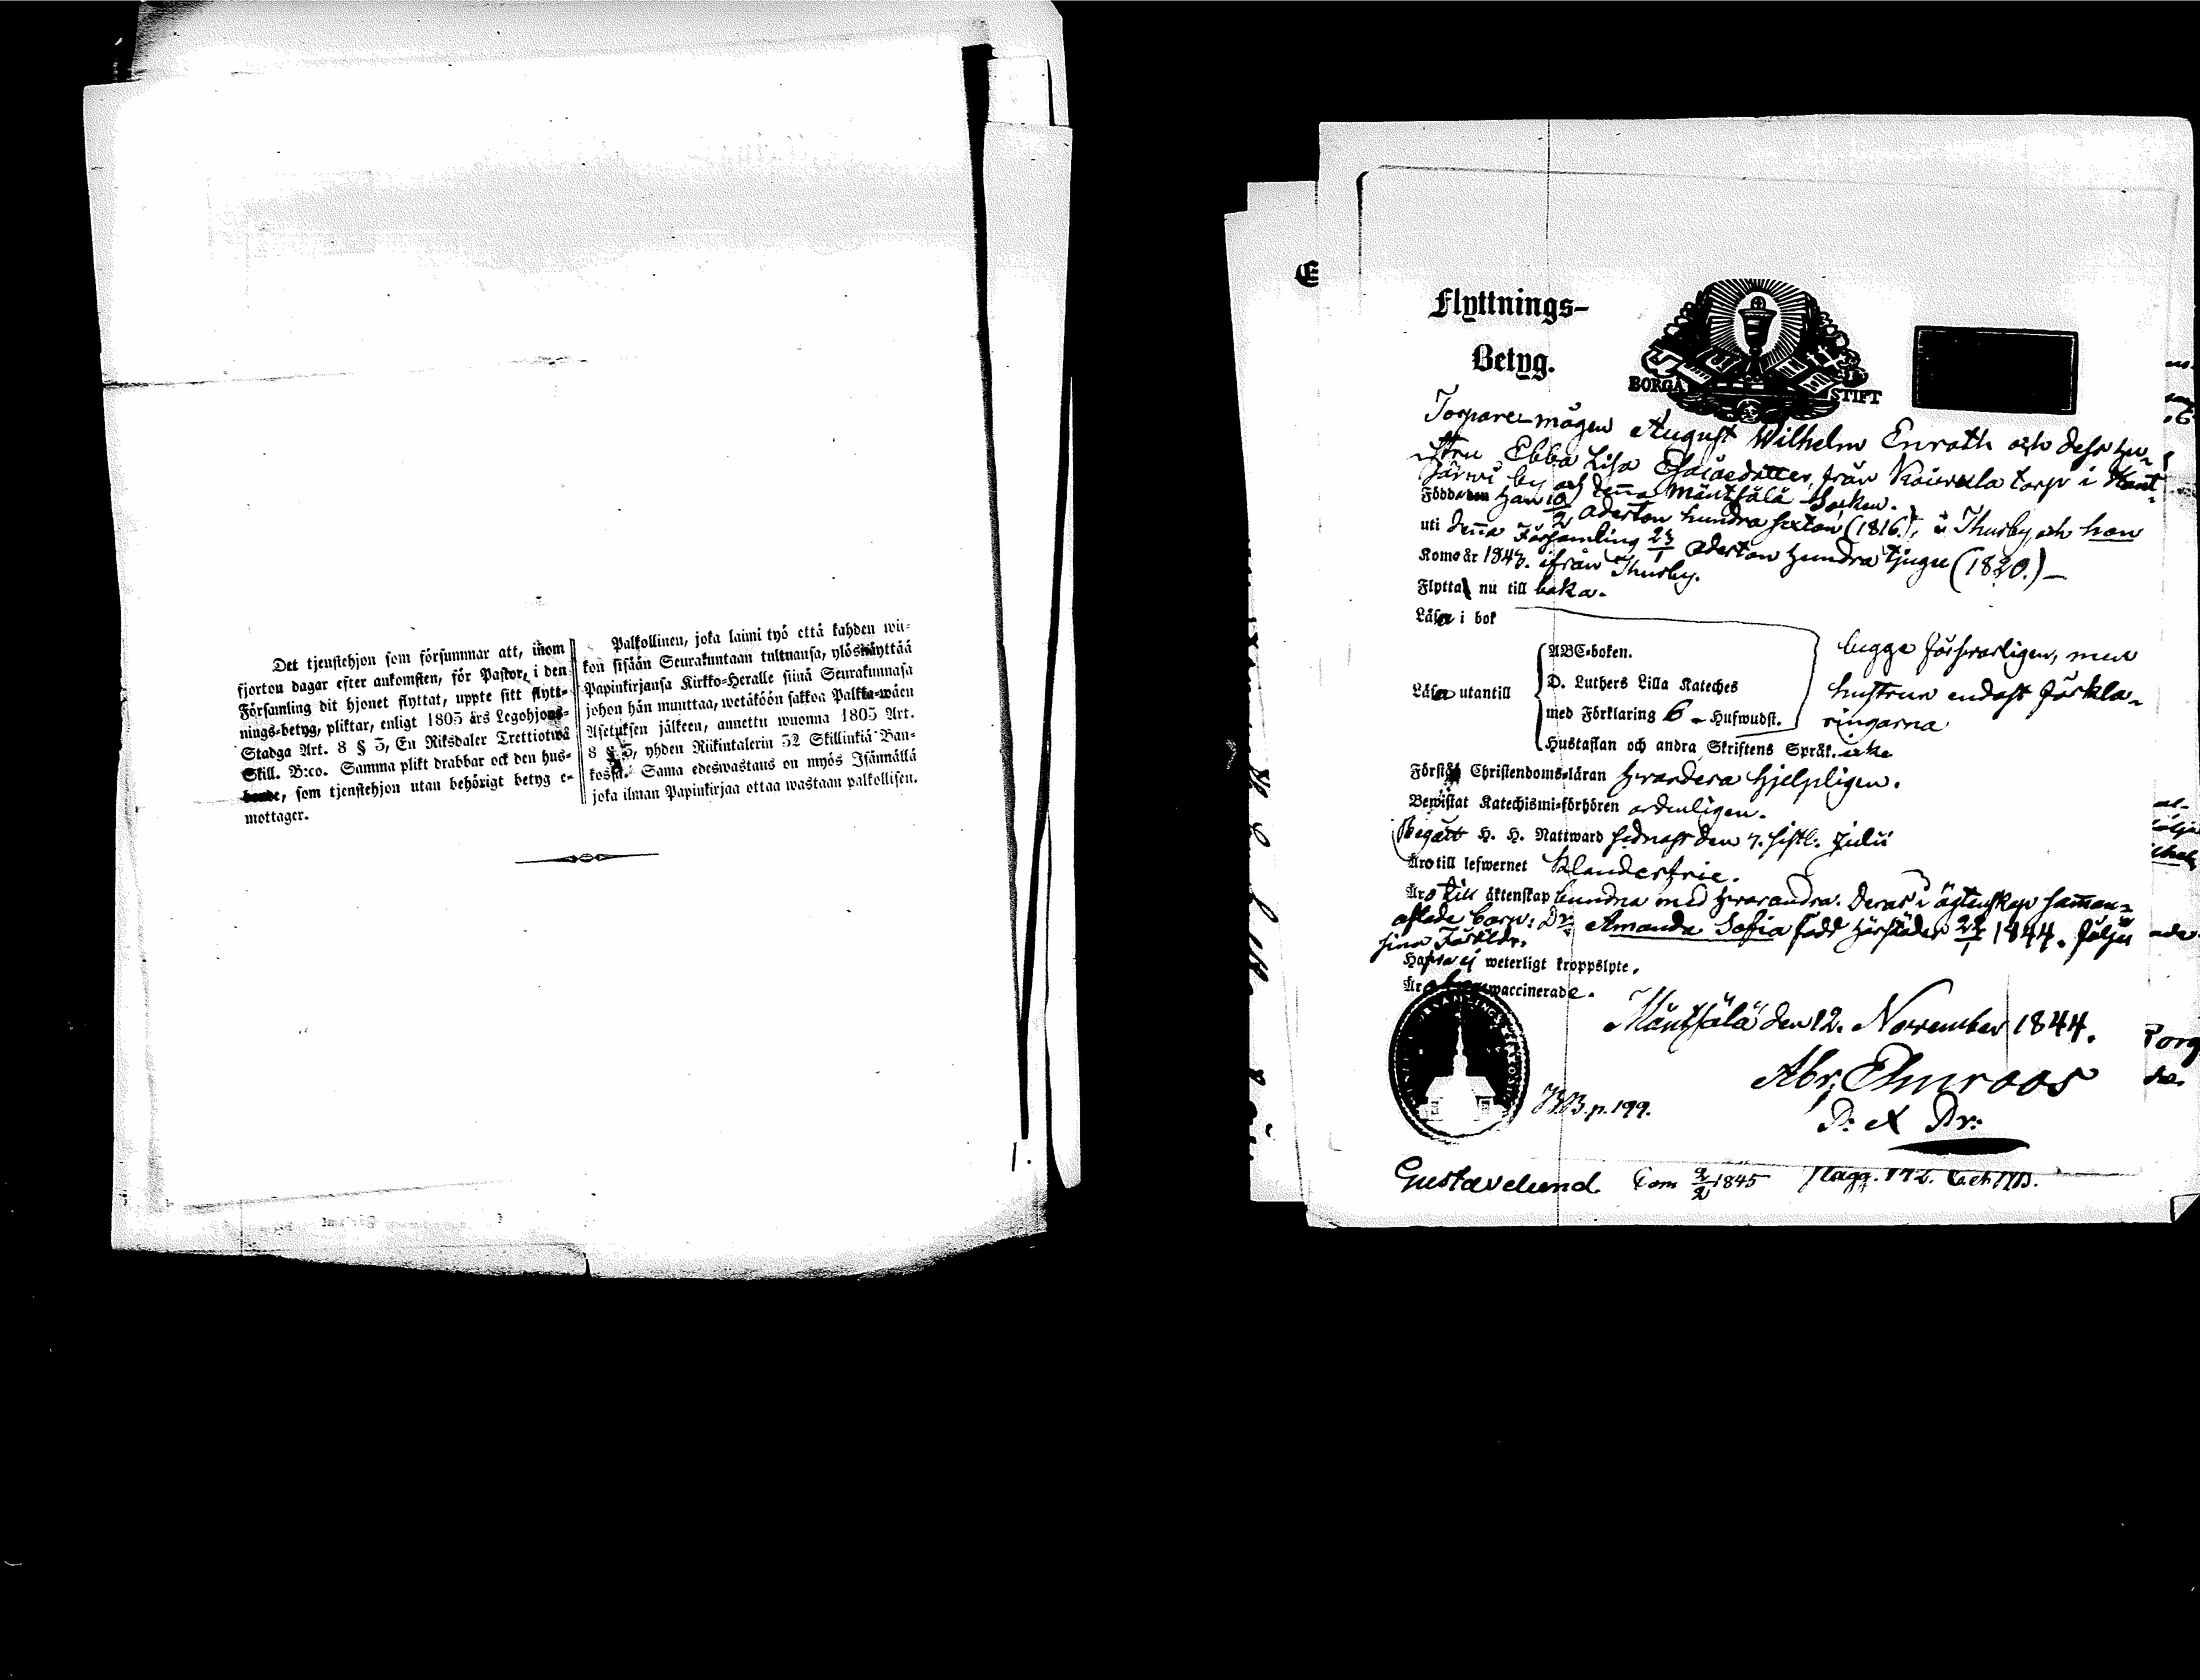 Det tjenstehjon som försummar att, inom
fjorton dagar efter ankomsten, för Pastor, i den
Församling dit hjonet flyttat, uppte sitt flytt-
nings-betyg, pliktar, enligt 1805 års Legohjons-
Stadga Art. 8 § 3, En Riksdaler Trettiotwå
Skill. B:co. Samma plikt drabbar ock den hus-
bonde, som tjenstehjon utan behörigt betyg e-
mottager.
Palkollinen, joka laimi työ että kahden wii-
kon sisään Seurakuntaan tultuansa, ylösnäyttää
Papinkirjansa Kirkko-Heralle siinä Seurakunnasa
johon hän muuttaa, wetäköön sakkoa Palkka-wäen
Asetuksen jälkeen, annettu wuonna 1805 Art.
8 § 3, yhden Riikintalerin 32 Skillinkiä Ban-
kossa. Sama edeswastaus on myös Isännällä
joka ilman Papinkirjaa ottaa wastaan palkollisen.
1.
E
Flyttnings-
Betyg.
BORGÅ STIFT
Torpare-mågen August Wilhelm Enroth och dess hu-
stru Ebba Lisa Esaiaedotter, från torp i
Järwi by och denna Mäntsälä Socken.
Födde Han 10/2 aderton hundra sexton (1816), i Thusby, och hon
uti denna Församling 23/1 aderton hundra tjugu (1820.)—
Komo år 1843. ifrån Thusby.
Flytta nu till baka.
Läsa i bok
ABC-boken.
Läsa utantill D. Luthers Lilla Kateches
med Förklaring 6 - Hufwudst.
Hustaflan och andra Skriftens Språk. icke
bägge försvarligen, men
hustrun endast förkla-
ringarna
Förstå Christendoms-läran hvardera hjelpligen.
Bewistat Katechismi-förhören ordenligen.
Begått H. H. Nattward sednast den 7. sistl. Julii
Äro till lefwernet Klanderfrie.
Äro till äktenskap bundna med hvarandra. Deras i ägtenskap samman-
aflade barn: Dr. Amanda Sofia född härstädes 1844. följer
sina Föräldr.
Hafwa ej weterligt kroppslyte.
Äro waccinerade.
Mäntsälä den 12. November 1844.
Abr. Elmroos
P: et Pr:
p. 199.
Gustavelund. Kom 2/2 1845 pag. 172.